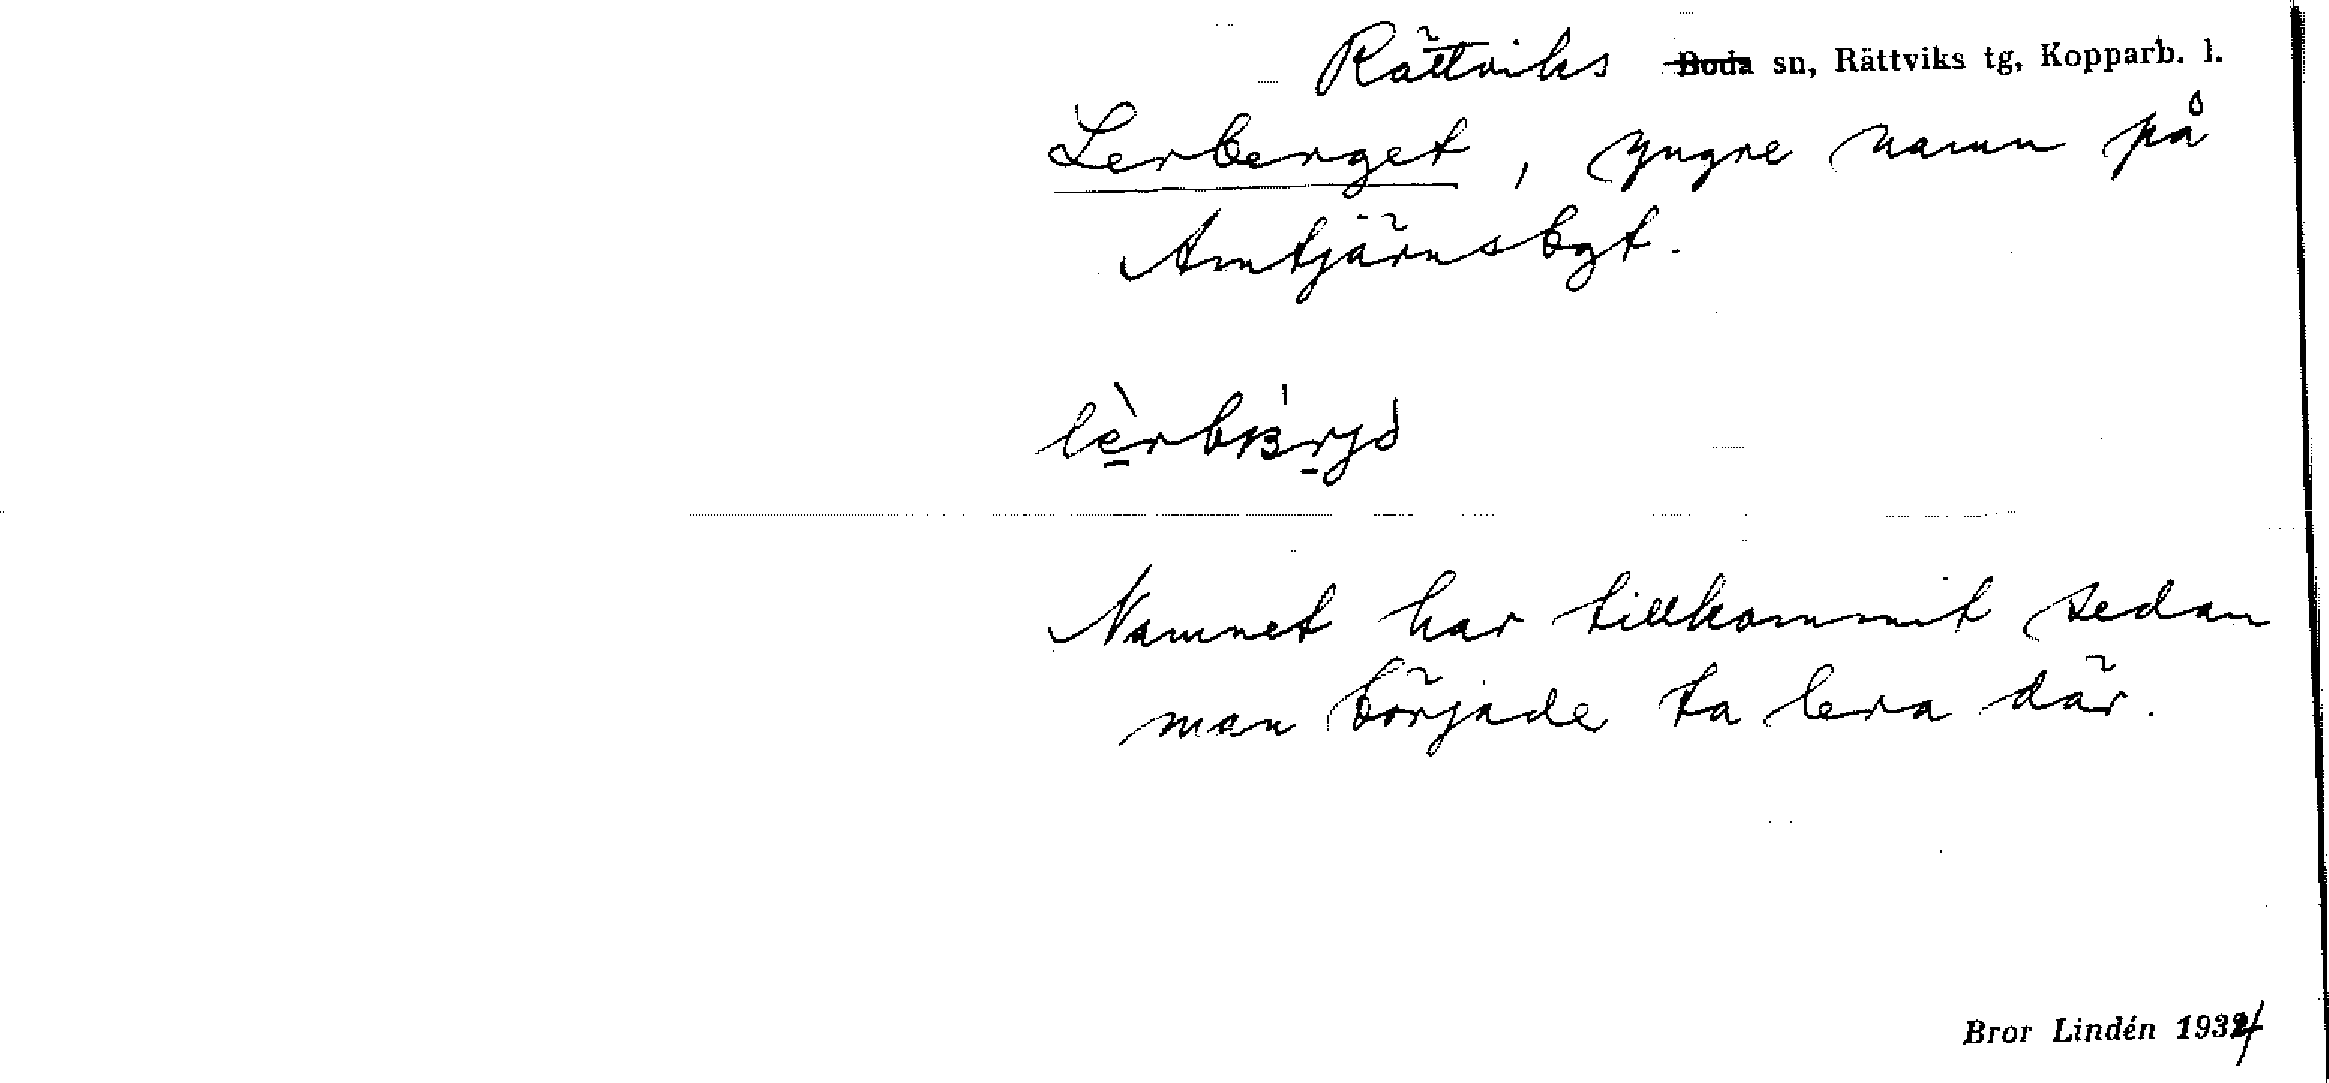 Rättviks Boda sn, Rättviks tg, Kopparb. l.
Lerberget, yngre namn på
Amtjärnsbgt.
Namnet har tillkommit sedan
man började ta lera där.
Bror Lindén 1934